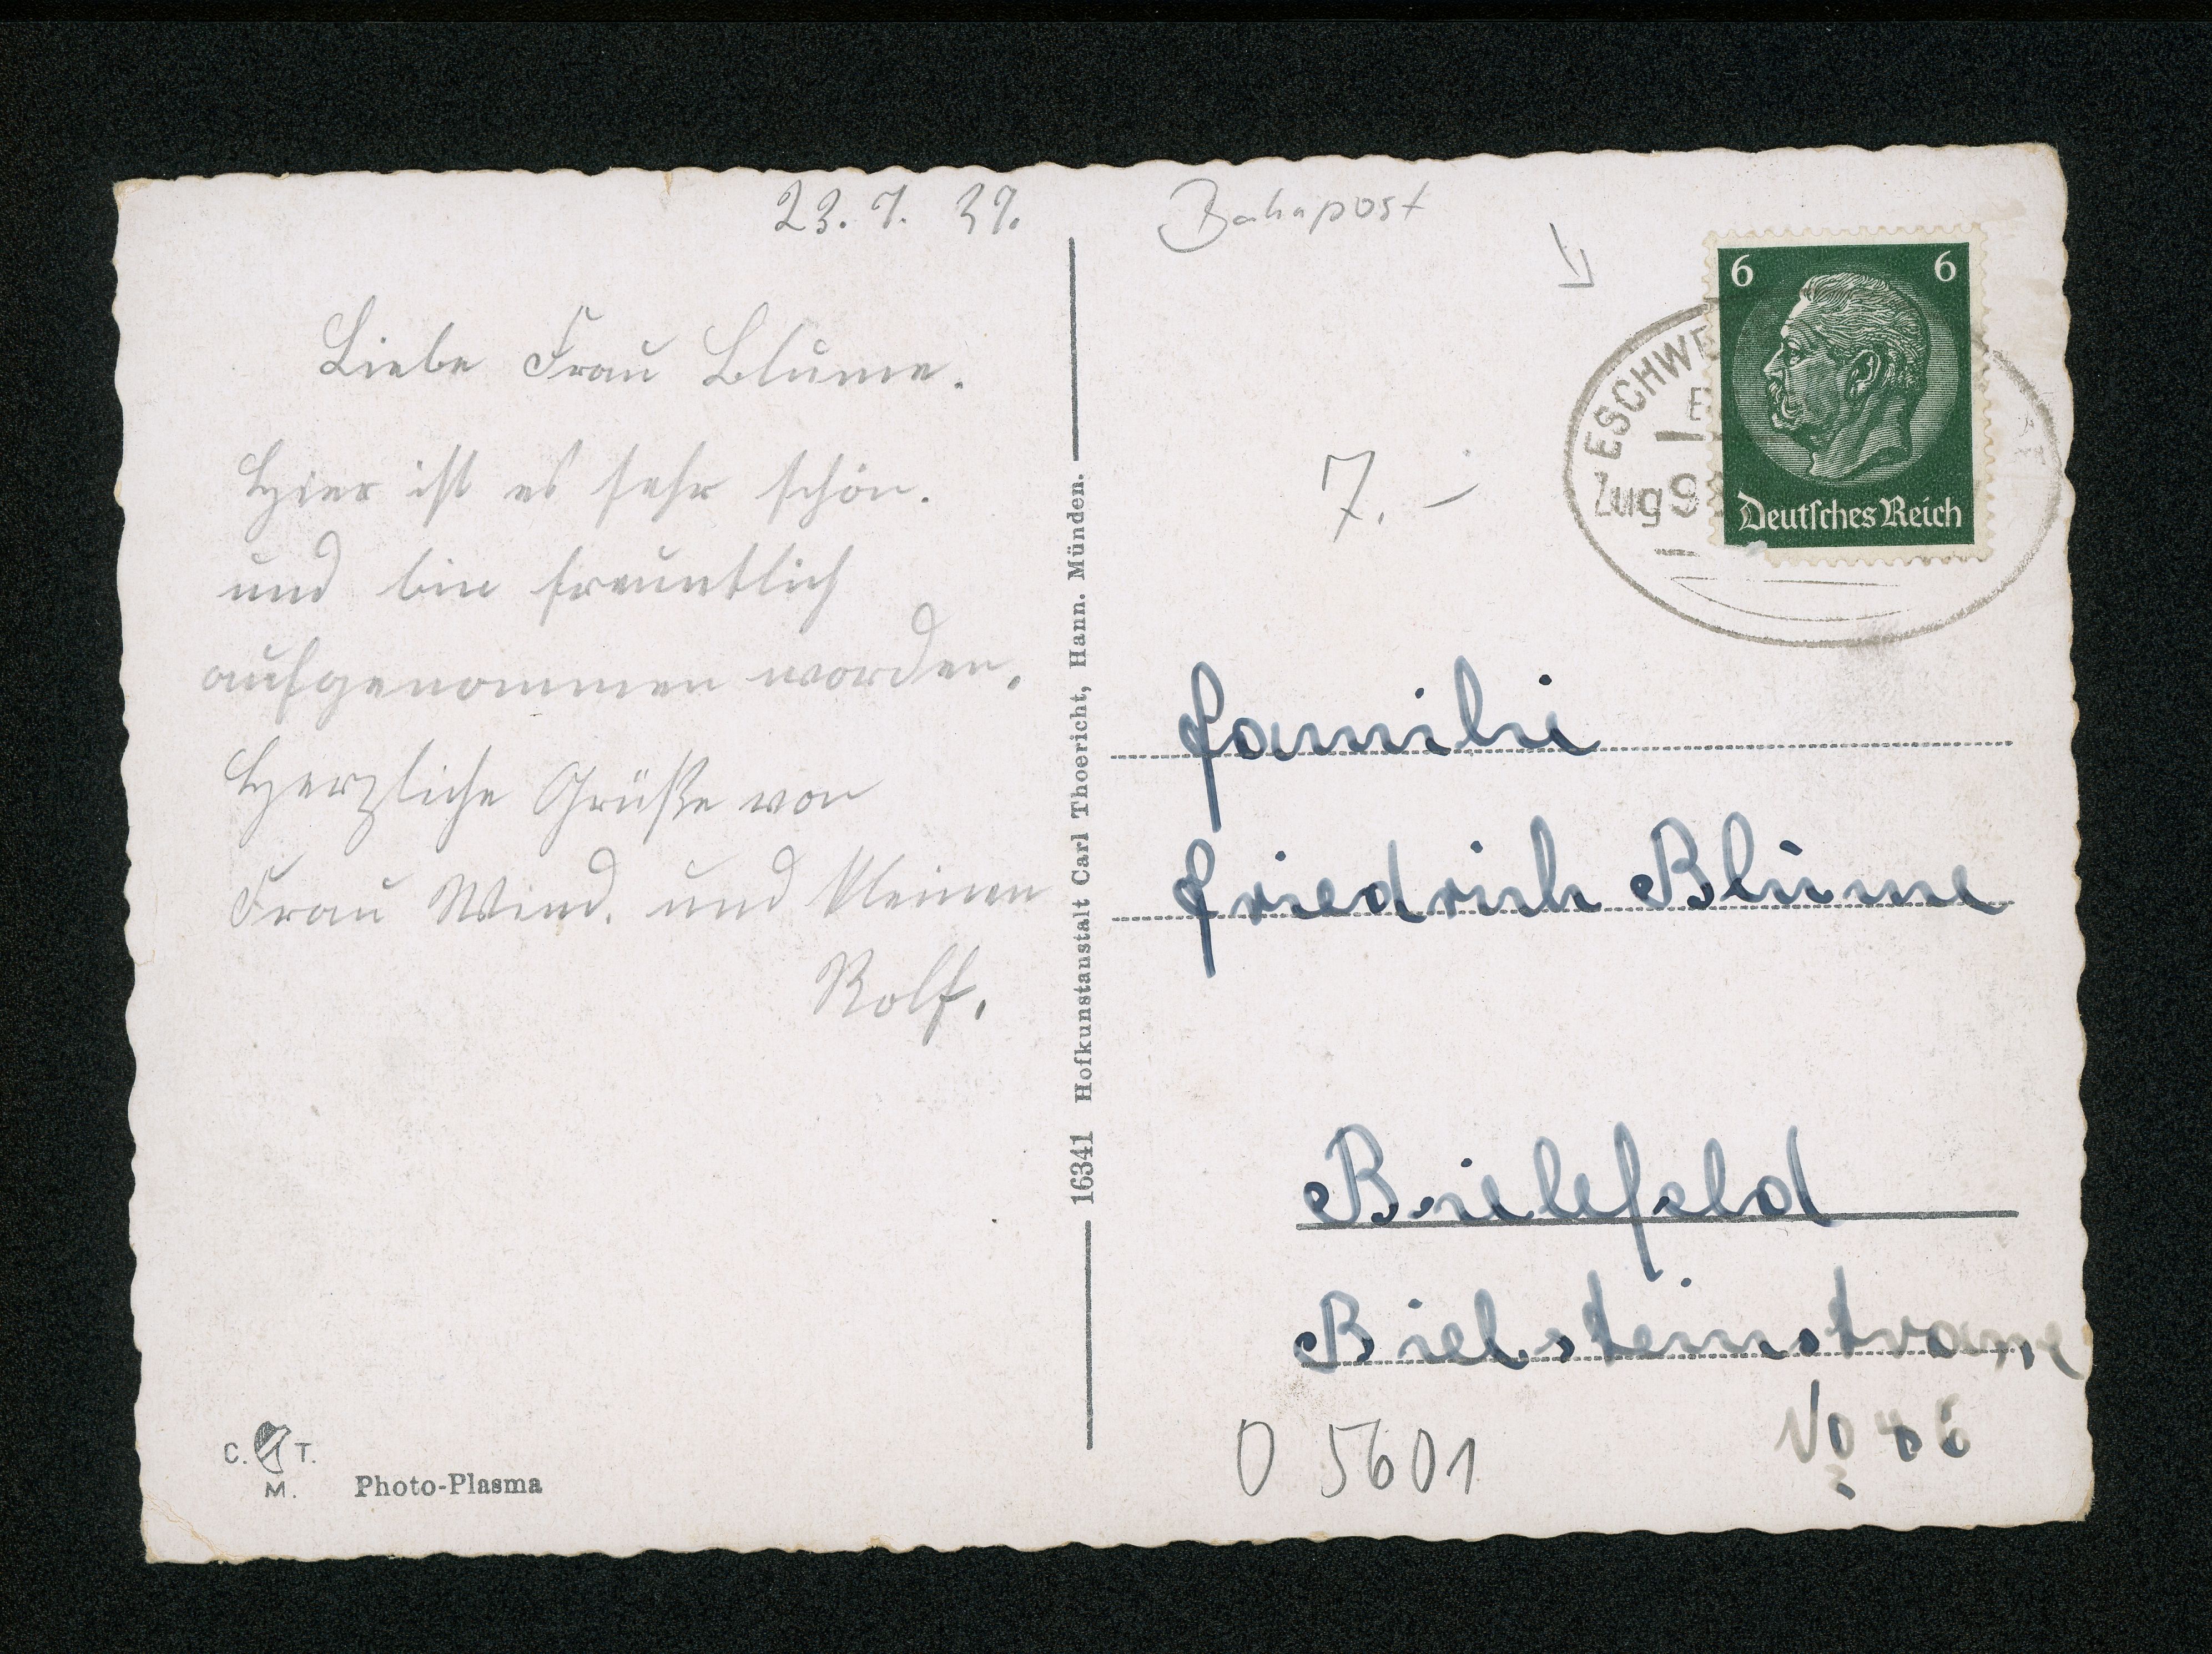 23. 7. 37.
Liebe Frau Blume.
Hier ist es sehr schön.
und bin freuntlich
aufgenommen worden.
Herzliche Grüße von
Frau Wind. und kleinen
Rolf.
C. T.
M.
Photo-Plasma
16341 Hofkunstanstalt Carl Thoericht, Hann. Münden.
Bahnpost
6 6
Deutsches Reich
ESCHWE
Zug 9
7. –
Familie
Friedrich Blume
Bielefeld
Bielsteinstrasse
No
O 5601